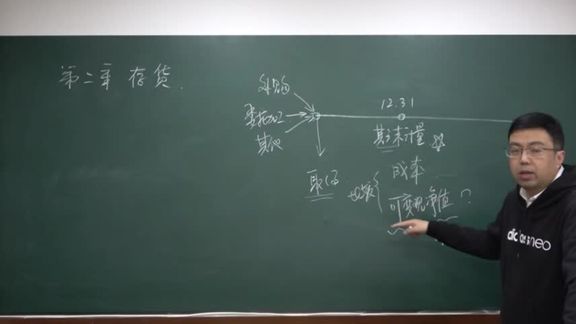 第二章 存货.
外购
委托加工
其他
取得
12.31
期末计量 ☆
比较
成本
可变现净值?